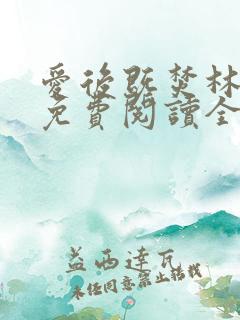 愛後既焚林
免費閱讀全
益西達瓦
未經同意禁止轉載